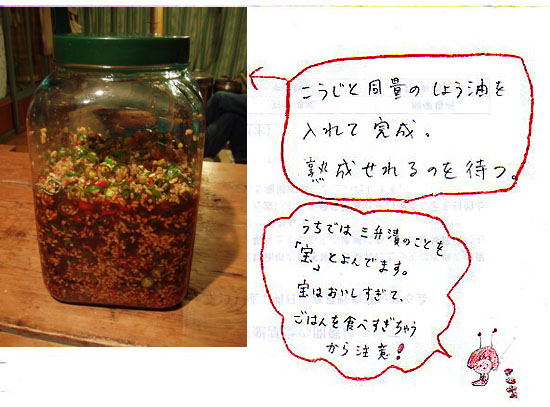 こうじと同量のしょう油を
入れて完成。
熟成せれるのを待つ。
うちでは三升漬のことを
「宝」とよんでます。
宝はおいしすぎて、
ごはんを食べすぎちゃう
から注意!